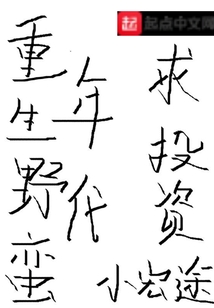 起点中文网
重生野蛮
年代
求投资
小宏途